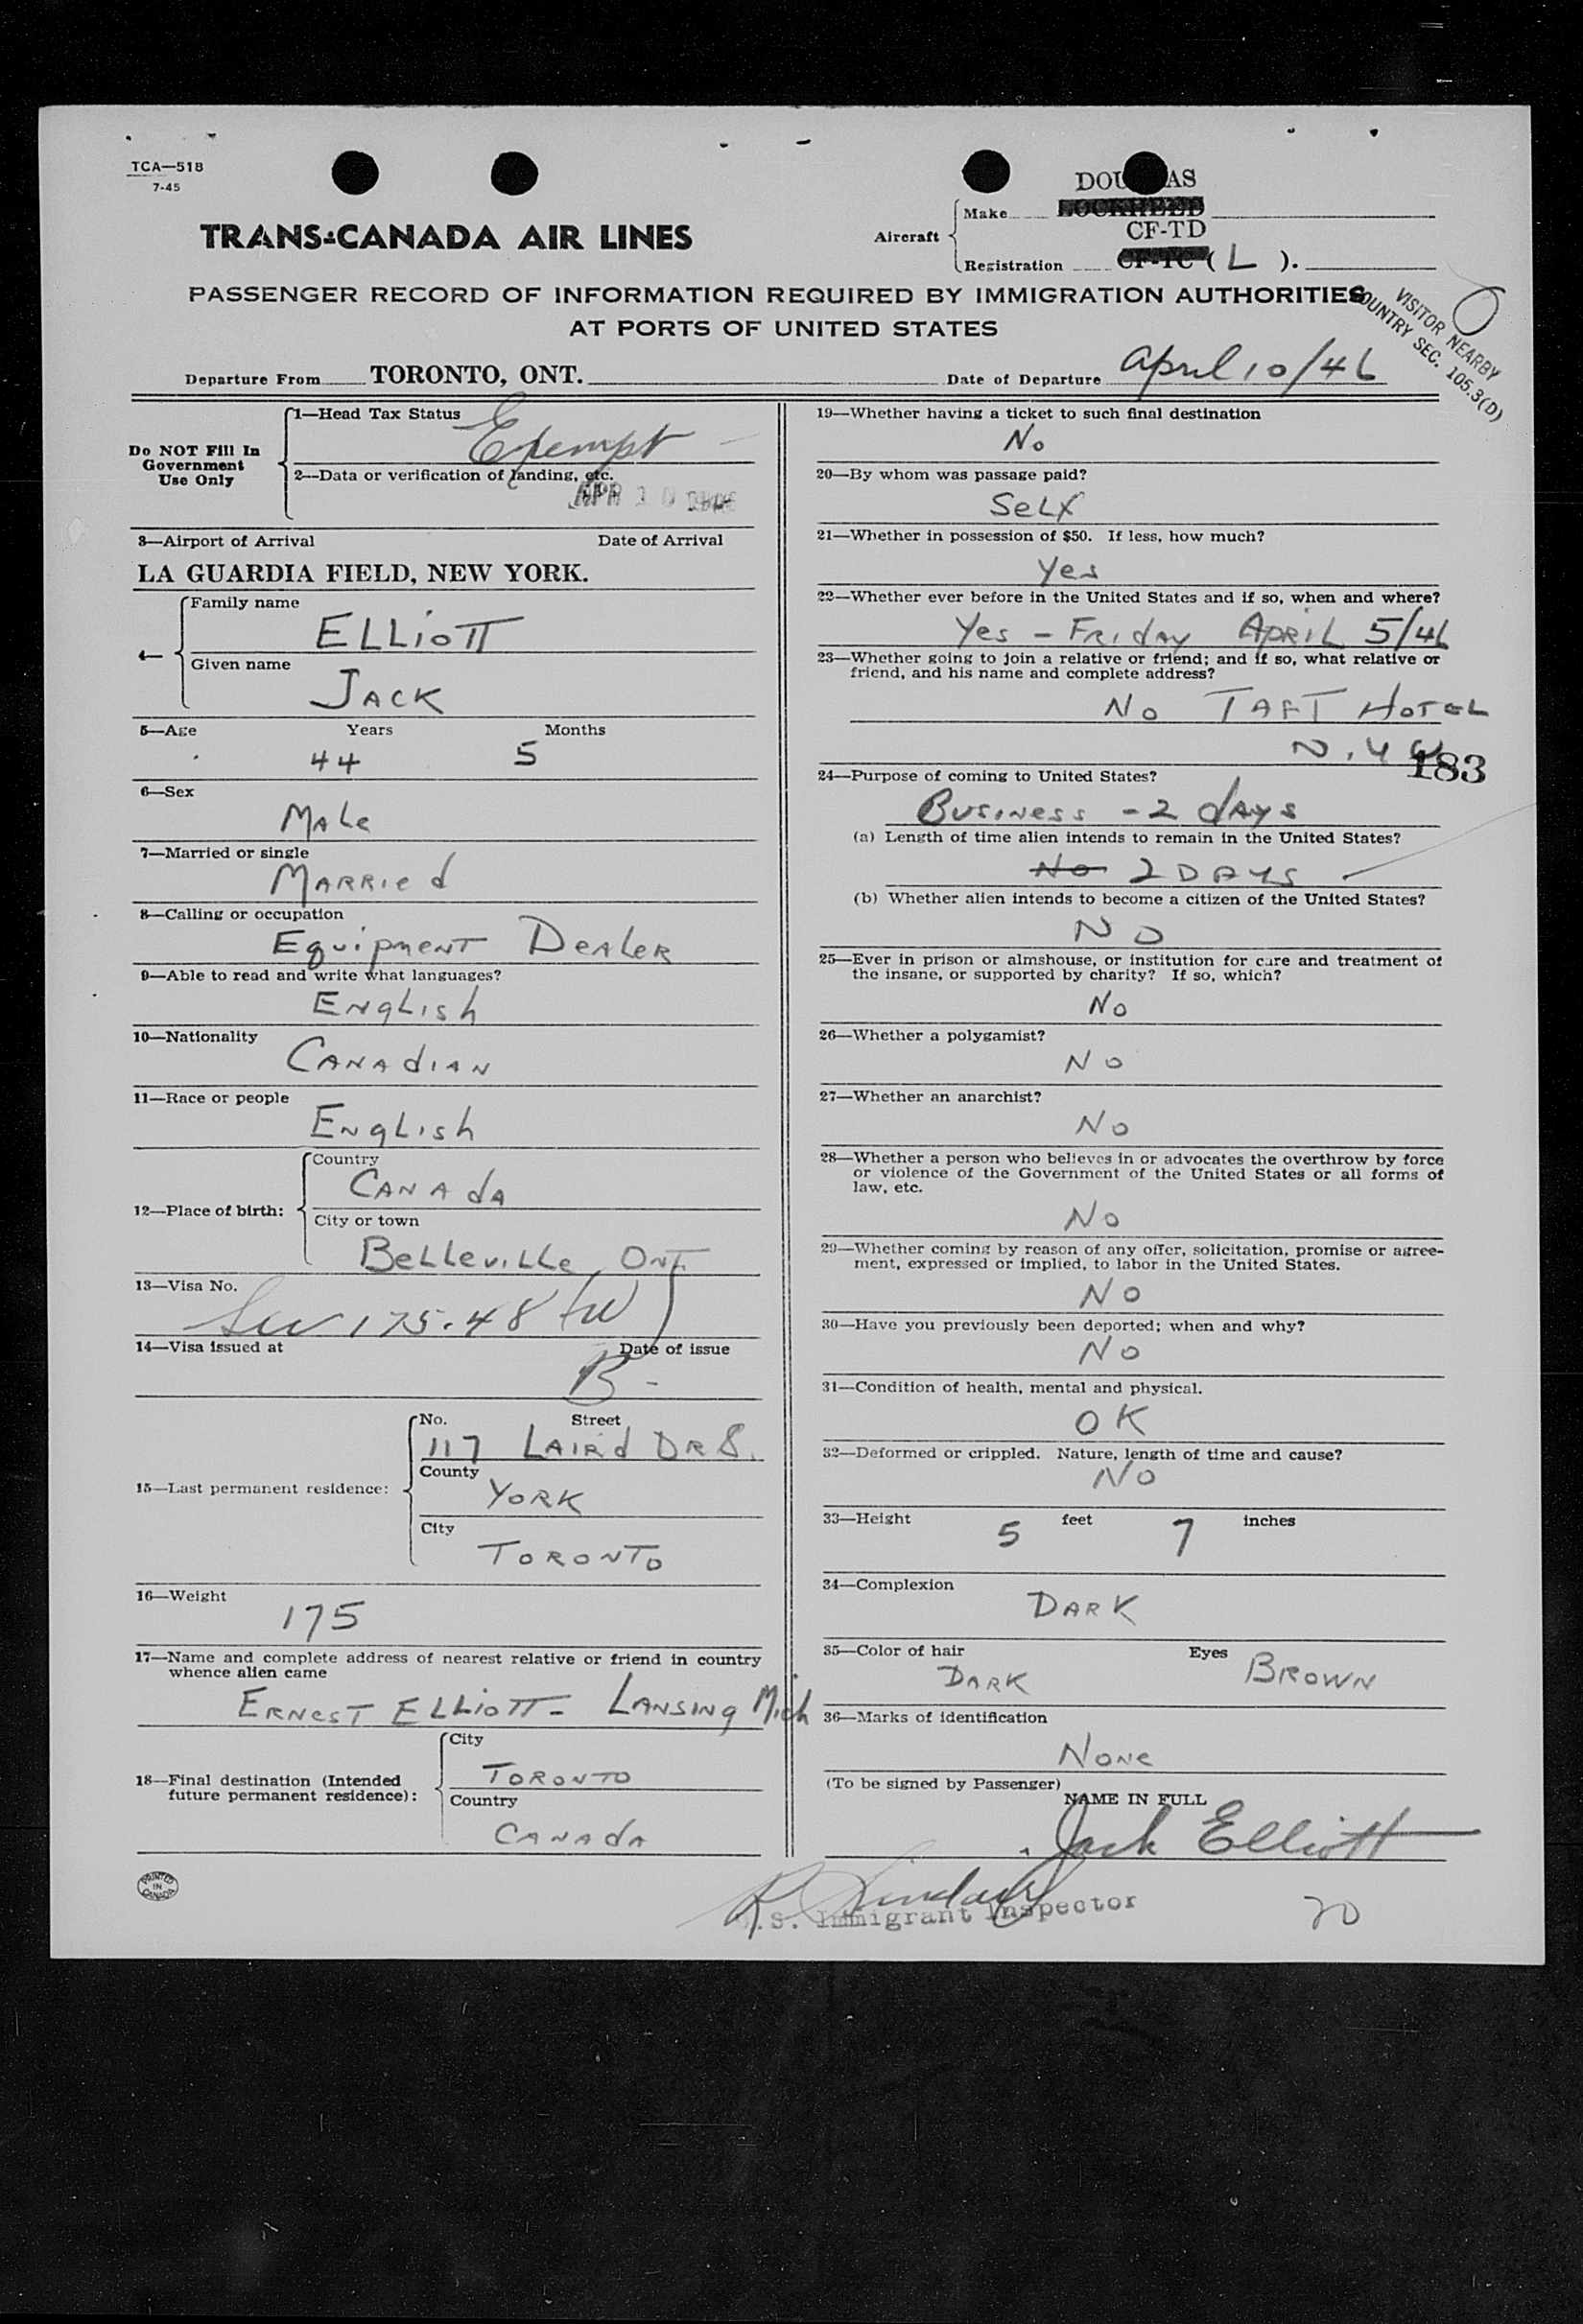 TCA—518
7-45
TRANS-CANADA AIR LINES
DOUGLAS
Aircraft
Make LOCKHEED
CF-TD
Registration CF-TC ( L ).
PASSENGER RECORD OF INFORMATION REQUIRED BY IMMIGRATION AUTHORITIES
AT PORTS OF UNITED STATES
VISITOR NEARBY
COUNTRY SEC. 105.3(D)
Departure From TORONTO, ONT.
Date of Departure April 10/46
Do NOT Fill In
Government
Use Only
1—Head Tax Status
Exempt
2—Data or verification of landing, etc.
APR 10
3—Airport of Arrival Date of Arrival
LA GUARDIA FIELD, NEW YORK.
4—
Family name
ELLIOTT
Given name
JACK
5—Age Years Months
44 5
6—Sex
MALe
7—Married or single
MARRIed
8—Calling or occupation
EquipmenT DeALeR
9—Able to read and write what languages?
ENgLish
10—Nationality
CANAdIAN
11—Race or people
ENgLish
12—Place of birth:
Country
CANAdA
City or town
BeLLeviLLe, ONT.
13—Visa No.
175.48
14—Visa issued at Date of issue
B -
15—Last permanent residence:
No. Street
117 LAIRd DR S.
County
YORK
City
TORONTO
16—Weight
175
17—Name and complete address of nearest relative or friend in country
whence alien came
ERNesT ELLIOTT - LANSINg Mich
18—Final destination (Intended
future permanent residence):
City
TORONTO
Country
CANAdA
PRINTED
IN
CANADA
19—Whether having a ticket to such final destination
No
20—By whom was passage paid?
SeLf
21—Whether in possession of $50. If less, how much?
Yes
22—Whether ever before in the United States and if so, when and where?
Yes - FRIdAy APRIL 5/46
23—Whether going to join a relative or friend; and if so, what relative or
friend, and his name and complete address?
No TAFT HOTEL
N.Y.
183
24—Purpose of coming to United States?
BusiNess - 2 dAys
(a) Length of time alien intends to remain in the United States?
No 2 DAYS
(b) Whether alien intends to become a citizen of the United States?
NO
25—Ever in prison or almshouse, or institution for care and treatment of
the insane, or supported by charity? If so, which?
No
26—Whether a polygamist?
No
27—Whether an anarchist?
No
28—Whether a person who believes in or advocates the overthrow by force
or violence of the Government of the United States or all forms of
law, etc.
No
29—Whether coming by reason of any offer, solicitation, promise or agree-
ment, expressed or implied, to labor in the United States.
No
30—Have you previously been deported; when and why?
No
31—Condition of health, mental and physical.
OK
32—Deformed or crippled. Nature, length of time and cause?
No
33—Height 5 feet 7 inches
34—Complexion
DARK
35—Color of hair Eyes
DARK BROWN
36—Marks of identification
NoNe
(To be signed by Passenger)
NAME IN FULL
Jack Elliott
U.S. Immigrant Inspector
20